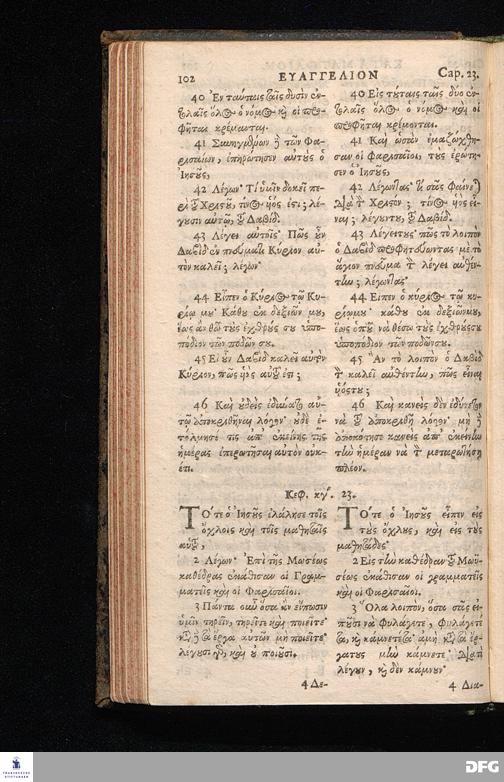 102
ΕΥΑΓΓΕΛΙΟΝ
Cap. 23.
40 Ἐν ταύταις ταῖς δυσὶν ἐν-
τολαῖς ὅλος ὁ νόμος καὶ οἱ προ-
φῆται κρέμανται.
41 Συνηγμένων δὲ τῶν Φα-
ρισαίων, ἐπηρώτησεν αὐτοὺς ὁ
Ἰησοῦς,
42 Λέγων· Τί ὑμῖν δοκεῖ πε-
ρὶ τοῦ Χριστοῦ, τίνος υἱός ἐστι; λέ-
γουσιν αὐτῷ, τοῦ Δαβίδ.
43 Λέγει αὐτοῖς· Πῶς οὖν
Δαβὶδ ἐν πνεύματι Κύριον αὐ-
τὸν καλεῖ; λέγων·
44 Εἶπεν ὁ Κύριος τῷ Κυ-
ρίῳ μου· Κάθου ἐκ δεξιῶν μου,
ἕως ἂν θῶ τοὺς ἐχθρούς σου ὑπο-
πόδιον τῶν ποδῶν σου.
45 Εἰ οὖν Δαβὶδ καλεῖ αὐτὸν
Κύριον, πῶς υἱὸς αὐτοῦ ἐστι;
46 Καὶ οὐδεὶς ἐδύνατο αὐ-
τῷ ἀποκριθῆναι λόγον· οὐδὲ ἐ-
τόλμησέ τις ἀπ' ἐκείνης τῆς
ἡμέρας ἐπερωτῆσαι αὐτὸν οὐκ-
έτι.
Κεφ. κγʹ. 23.
ΤΌτε ὁ Ἰησοῦς ἐλάλησε τοῖς
ὄχλοις καὶ τοῖς μαθηταῖς
αὐτοῦ,
2 Λέγων· Ἐπὶ τῆς Μωσέως
καθέδρας ἐκάθισαν οἱ Γραμ-
ματεῖς καὶ οἱ Φαρισαῖοι.
3 Πάντα οὖν ὅσα ἂν εἴπωσιν
ὑμῖν τηρεῖν, τηρεῖτε καὶ ποιεῖτε·
κατὰ δὲ τὰ ἔργα αὐτῶν μὴ ποιεῖτε·
λέγουσι γὰρ, καὶ οὐ ποιοῦσι.
4 Δε-
40 Εἰς τούταις ταῖς δύο ἐν-
τολαῖς ὅλος ὁ νόμος καὶ οἱ
προφῆται κρέμονται.
41 Καὶ ὡσὰν ἐμαζώχθη-
σαν οἱ Φαρισαῖοι, τοὺς ἐρώτη-
σεν ὁ Ἰησοῦς,
42 Λέγωντας· τί σᾶς φαίνεται
διὰ τὸν Χριστόν; τίνος υἱὸς εἶ-
ναι; λέγουντου, τοῦ Δαβίδ.
43 Λέγειτους· πῶς τὸ λοιπὸν
ὁ Δαβὶδ προφητεύωντας μὲ τὸ
ἅγιον πνεῦμα τὸν λέγει αὐθέν-
την; λέγωντας·
44 Εἶπεν ὁ κύριος τῷ κυ-
ρίῳμου· κάθου ἐκ δεξιῶνμου,
ἕως ὁποῦ νὰ θέσω τοὺς ἐχθρούςσου
ὑποπόδιον τῶν ποδῶνσου.
45 Ἂν τὸ λοιπὸν ὁ Δαβὶδ
τὸν καλεῖ αὐθέντην, πῶς εἶναι
υἱόςτου;
46 Καὶ κανεὶς δὲν ἐδύνετον
νὰ τοῦ ἀποκριθῇ λόγον· μηδὲ
ἀποκότησε κανεὶς ἀπ' ἐκείνην
τὴν ἡμέραν νὰ τὸν μεταρωτήσῃ
πλέον.
ΤΌτε ὁ Ἰησοῦς εἶπεν εἰς
τοὺς ὄχλους, καὶ εἰς τοὺς
μαθητάδες·
2 Εἰς τὴν καθέδραν τοῦ Μωυ-
σέως ἐκάθισαν οἱ γραμματεῖς
καὶ οἱ Φαρισαῖοι.
3 Ὅλα λοιπὸν, ὅσα σᾶς εἰ-
ποῦσι νὰ φυλάγετε, φυλάγετέ
τα, καὶ κάμνετέτα· ἀμὴ κατὰ τὰ ἔρ-
γατους μὴν κάμνετε· διατὶ
λέγουν, καὶ δὲν κάμνουν·
4 Δια-
FRANCKESCHE
STIFTUNGEN
DFG